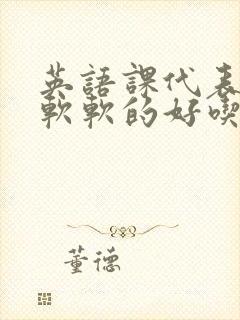 英語課代表
軟軟的好喫
董德